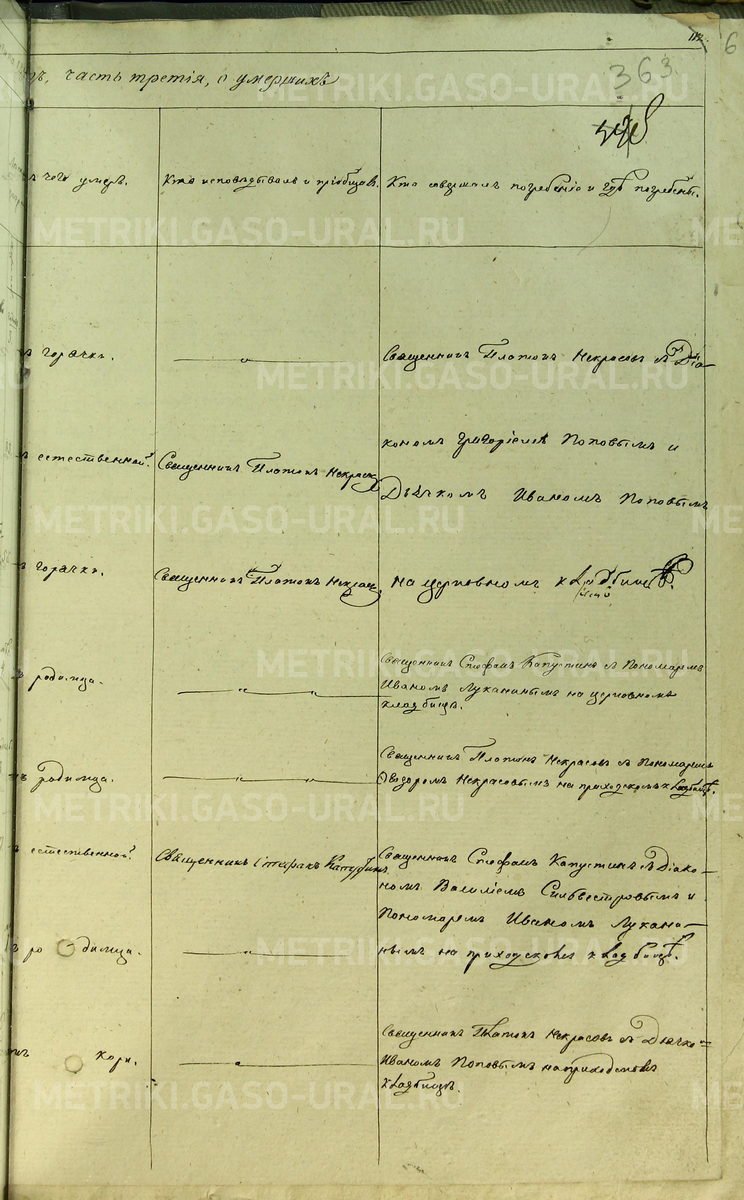 112.
6
363
ъ, часть третія, о умершихъ
ъ чего умеръ.
Кто исповѣдывалъ и пріобщалъ.
Кто совершалъ погребеніе и гдѣ погребены.
ъ горячки.
Священникъ Платонъ Некрасовъ съ Діа-
кономъ Григоріемъ Поповымъ и
ъ естественной.
Священникъ Платонъ Некрасов
Дьячкомъ Иваномъ Поповымъ
ъ горячки.
Священникъ Платонъ Некрасов
на церковномъ кладбищѣ.
ъ родимца.
Священникъ Стефанъ Капустинъ съ Пономаремъ
Иваномъ Луканинымъ на церковномъ
кладбищѣ.
ъ родимца.
Священникъ Платонъ Некрасовъ съ Пономаремъ
Ѳеодоромъ Некрасовымъ на приходскомъ кладбищѣ.
ъ естественной.
Священникъ Стефанъ Капустинъ
Священникъ Стефанъ Капустинъ съ Діако-
номъ Василіемъ Сильвестровымъ и
Пономаремъ Иваномъ Лукани-
ъ родимца.
нымъ на приходскомъ кладбищѣ.
Священникъ Платонъ Некрасовъ съ Дьячко=
кори.
Иваномъ Поповымъ на приходскомъ
кладбищѣ.
METRIKI.GASO-URAL.RU